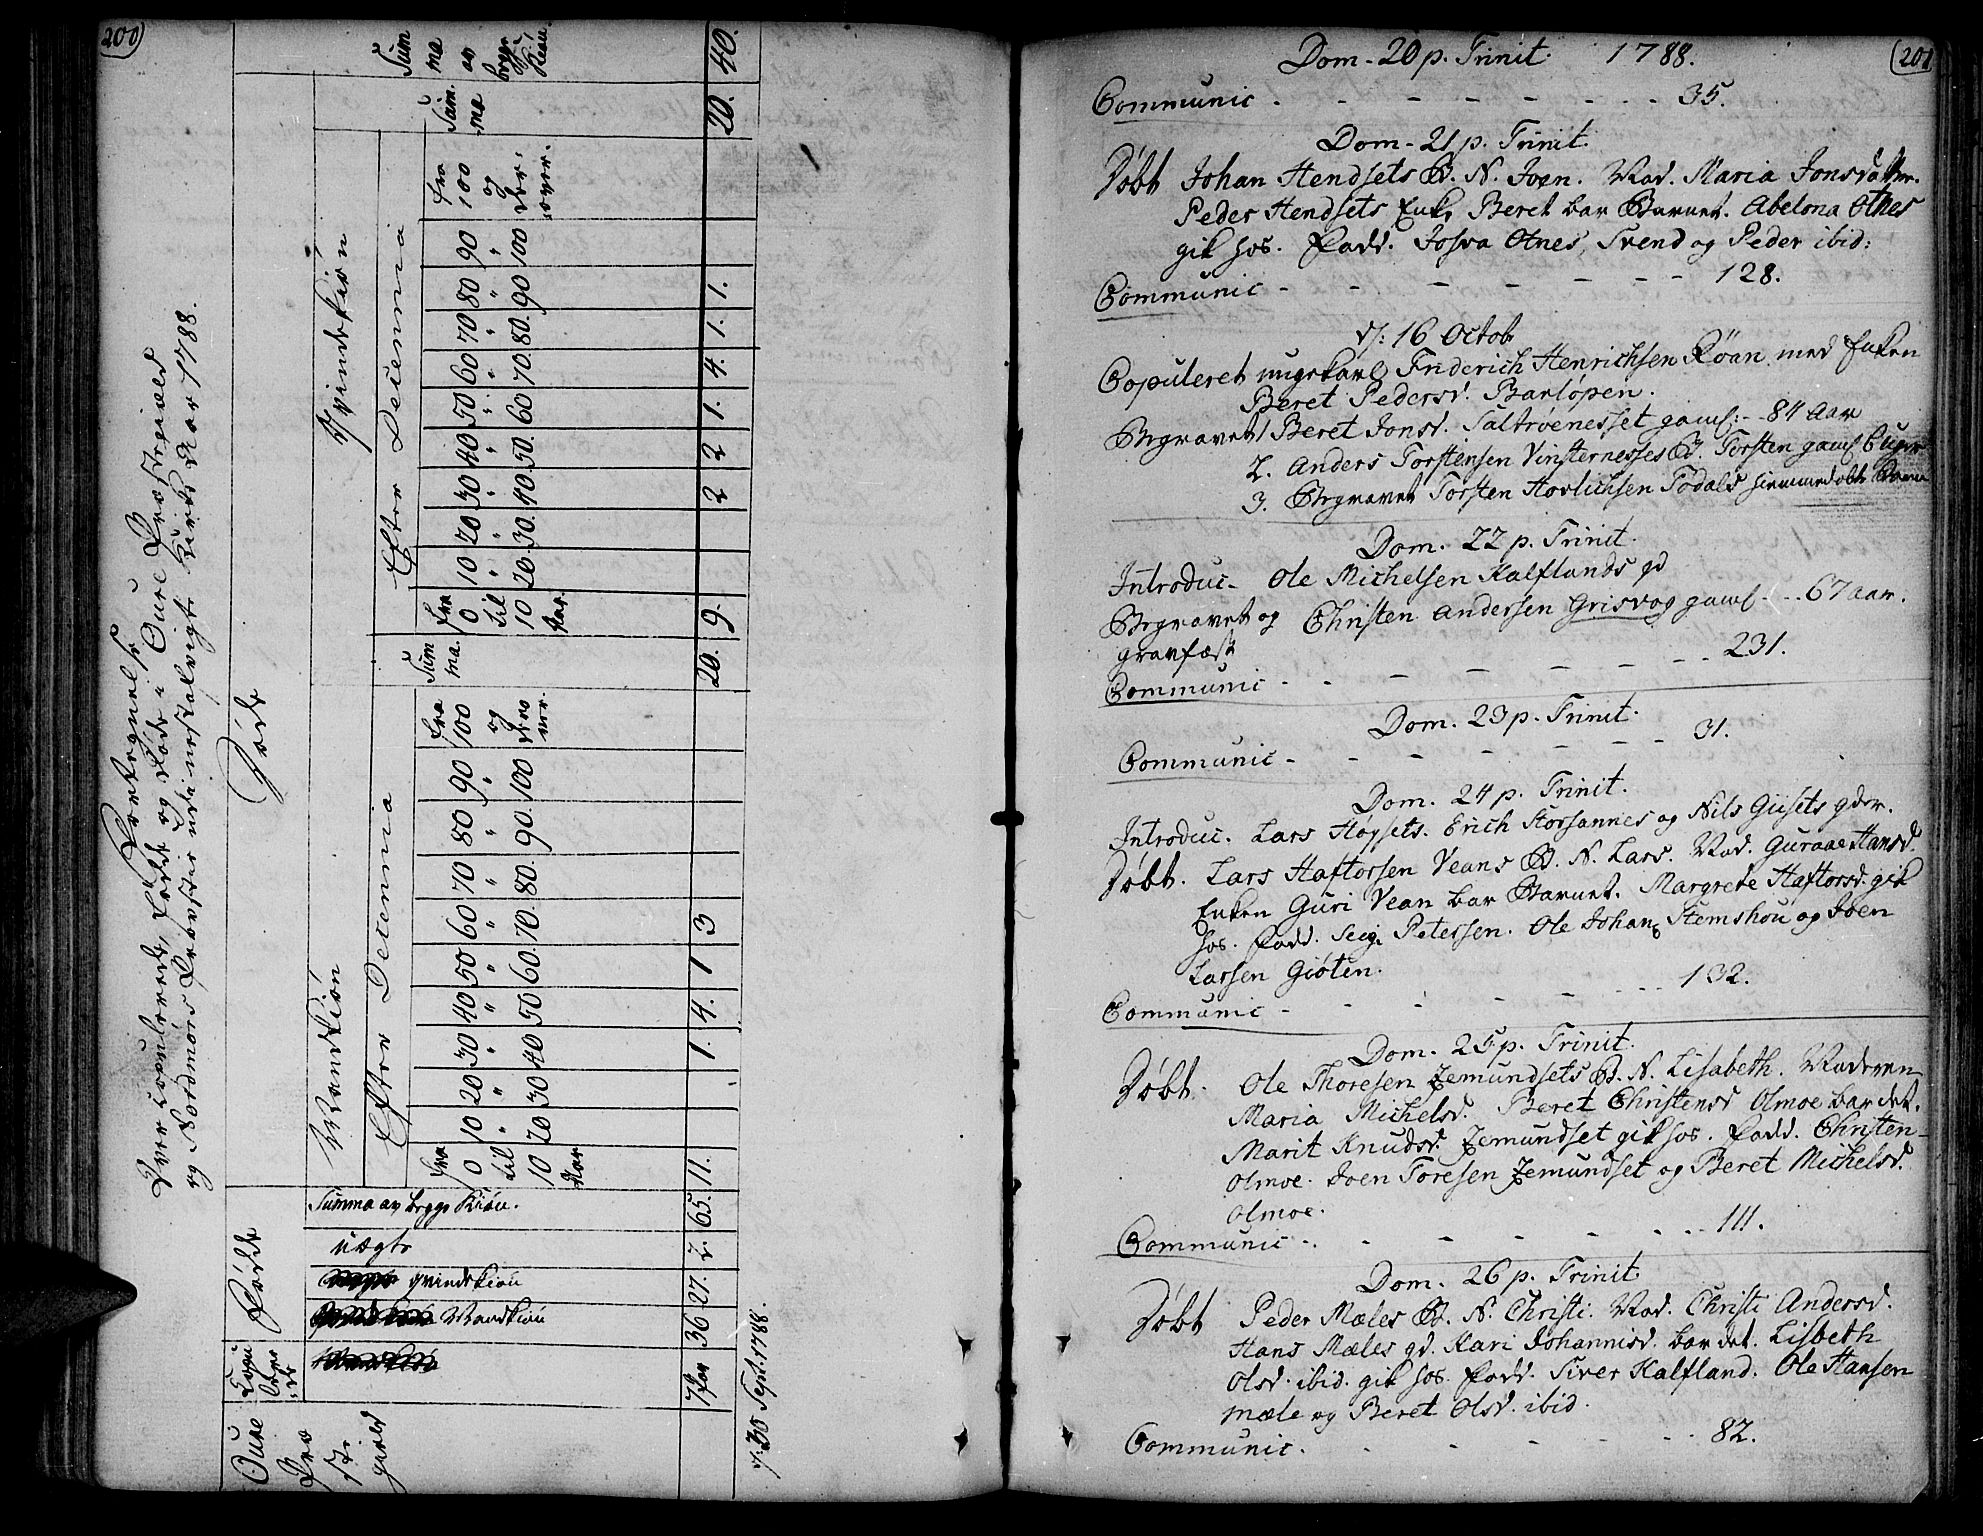 200
Fortegnelse
Over Copulerede, Fødde og Døde i Oure Præstegield
og Nordmørs Provstie udi nestafvigte Kirke Aar 1788.
Oure Præstegield
Copulerede
Fødde
Døde
Mandkiøn
qvindekiøn
uægte
Summa av begge Kiøn.
Mandkiøn
Efter Decennia
Fra 0 til 10 Aar.
10 " 20
20 " 30
30 " 40
40 " 50
50 " 60.
60 " 70.
70 " 80.
80 " 90.
90 " 100
Fra 100 og derover.
Summa.
Qvindekiøn
Efter Decennia
Fra 0 til 10 Aar.
10 " 20.
20 " 30.
30 " 40.
40 " 50.
50 " 60
60 " 70.
70 " 80.
80 " 90
90 " 100
Fra 100 og derover.
Summa
Summa av begge Kiøn
7 Par 36 27. 2. 65. 11. 1. 4. 1 3 20. 9. 2 2 1. 4. 1. 1. 20. 40.
d. 30 Sept. 1788.
201
Dom. 20 p. Trinit. 1788.
Communic - - - 35.
Dom. 21 p. Trinit.
Døbt Johan Hendsets B. N. Joen. Mod. Maria Jonsdatter.
Peder Hendsets Enke Beret bar Barnet. Abelona Otnes
gik hos. Fadd. Josva Otnes, Svend og Peder ibid:
Communic - - - 128.
d: 16 Octob
Copuleret ungekarl Friderich Henrichsen Røan med Enken
Beret Pedersd. Barløpen.
Begravet 1 Beret Jonsd. Saltrøenesset gaml: - 84 Aar
2. Anders Torstensen Vinsternesses B. Torsten gaml
3. Begravet Torsten Todals hiemmedøbt Barn
Dom. 22 p. Trinit.
Introduc - Ole Michelsen Kalflands gd
Begravet og Christen Andersen Grisvog gaml - - 67 aar.
gravfæst
Communic - - - 231.
Dom. 23 p. Trinit.
Communic - - - 31.
Dom. 24 p. Trinit.
Introduc. Lars Høysets. Erich Storsannes og Nils Giisets gder.
Døbt. Lars Haftorsen Veans B. N. Lars. Mod. Guraae Hansd.
Enken Guri Vean bar Barnet. Margrete Haftorsd. gik
hos. Fadd. Petersen. Ole Johans Stemshou og Joen
Larsen Giøten.
Communic - - - 132.
Dom. 25 p. Trinit.
Døbt. Ole Thoresen Zemundsets B. N. Lisabeth. Moderen
Maria Michelsd. Beret Christensd Olmoe bar det.
Marit Knudsd. Zemundset gik hos. Fadd. Christen
Olmoe. Joen Toresen Zemundset og Beret Michelsd.
Olmoe.
Communic - - - 111.
Dom. 26 p. Trinit
Døbt Peder Mæles B. N. Christi. Mod. Christi Andersd.
Hans Mæles gd. Kari Johannisd. bar det. Lisbeth
Olsd. ibid. gik hos. Fadd. Siver Kalfland. Ole Hansen
Mæle og Beret Olsd. ibid.
Communic. - - - 82.